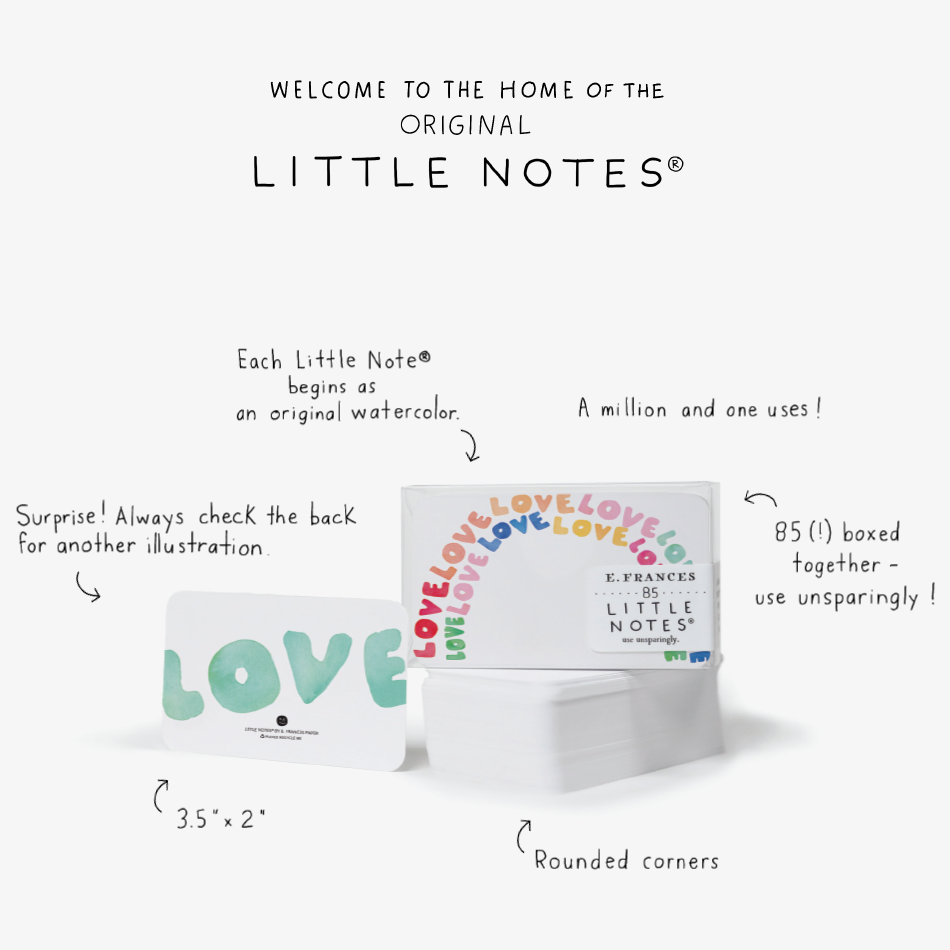 WELCOME TO THE HOME OF THE
ORIGINAL
LITTLE NOTES®
Each Little Note®
begins as
an original watercolor.
A million and one uses!
Surprise! Always check the back
for another illustration.
85 (!) boxed
together -
use unsparingly!
LOVE LOVE LOVE LOVE LOVE
LOVE LOVE LOVE LOVE
E. FRANCES
85
LITTLE
NOTES®
use unsparingly.
LOVE
LITTLE NOTES® BY E. FRANCES PAPER
PLEASE RECYCLE ME
3.5" x 2"
Rounded corners